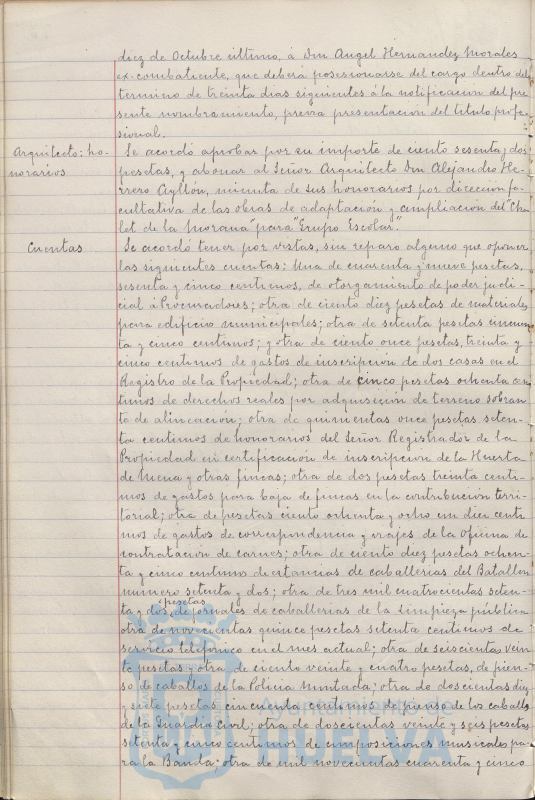 diez de Octubre último, a Don Angel Hernandez Morales
ex-combatiente, que deberá posesionarse del cargo dentro del
termino de treinta dias siguientes á la notificacion del pre
sente nombramiento, previa presentacion del titulo profe-
sional.
Arquitecto: ho-
norarios
Se acordó aprobar por su importe de ciento sesenta y dos
pesetas, y abonar al Señor Arquitecto Don Alejandro He-
rrero Ayllón, minuta de sus honorarios por direccion fa-
cultativa de las obras de adaptación y ampliacion del "Cha
let de la Morana" para "Grupo Escolar".
Cuentas
Se acordó tener por vistas, sin reparo alguno que oponer
las siguientes cuentas: Una de cuarenta y nueve pesetas,
sesenta y cinco centimos, de otorgamiento de poder judi-
cial á Procuradores; otra de ciento diez pesetas de materiales
para edificio municipales; otra de setenta pesetas cincuen
ta y cinco centimos; y otra de ciento once pesetas, treinta y
cinco centimos de gastos de inscripción de dos casas en el
Registro de la Propiedad; otra de cinco pesetas ochenta cen
timos de derechos reales por adquisición de terreno sobran
te de alineación; otra de quinientas once pesetas seten-
ta centimos de honorarios del Señor Registrador de la
Propiedad en certificación de inscripcion de la Huerta
de Mena y otras fincas; otra de dos pesetas treinta centi-
mos de gastos para baja de fincas en la contribución terri-
torial; otra de pesetas ciento ochenta y ocho con diez centi
mos de gastos de correspondencia y viajes de la Oficina de
contratación de carnes; otra de ciento diez pesetas ochen-
ta y cinco centimos de estancias de caballerias del Batallon
numero setenta y dos; otra de tres mil cuatrocientas seten-
ta y dos pesetas de jornales de caballerias de la Limpieza pública
otra de novecientas quince pesetas setenta centimos de
servicio telefonico en el mes actual; otra de seiscientas vein
te pesetas y otra de ciento veinte y cuatro pesetas, de pien-
so de caballos de la Policia Montada; otra de doscientas diez
y siete pesetas cincuenta centimos de pienso de los caballos
de la Guardia Civil; otra de doscientas veinte y seis pesetas
setenta y cinco centimos de composiciones musicales pa-
ra la Banda; otra de mil novecientas cuarenta y cinco
Ayuntamiento
HUELVA